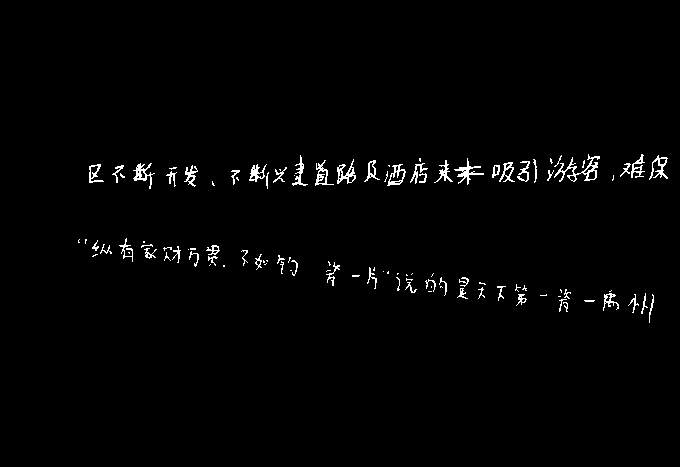 区不断开发、不断兴建道路及酒店来来吸引游客,难保
“纵有家财万贯、不如钧瓷一片”说的是天下第一瓷一禹州